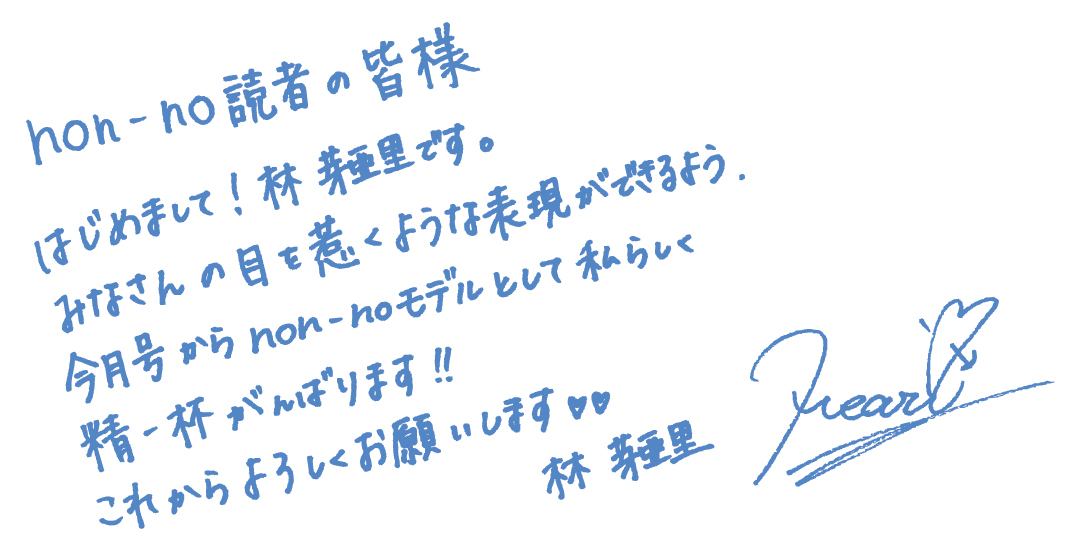 non-no読者の皆様
はじめまして!林 芽亜里です。
みなさんの目を惹くような表現ができるよう.
今月号からnon-noモデルとして私らしく
精一杯がんばります!!
これからよろしくお願いします♥♥
林 芽亜里